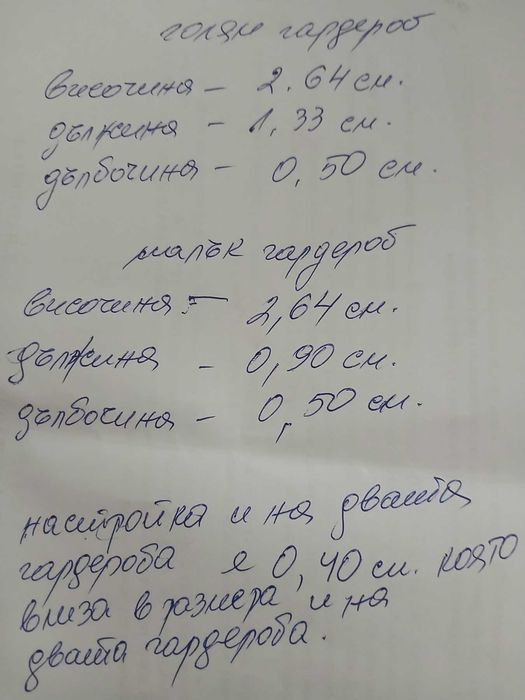 голям гардероб
височина – 2.64 см.
дължина – 1,33 см.
дълбочина – 0,50 см.
малък гардероб
височина – 2,64 см.
дължина – 0,90 см.
дълбочина – 0,50 см.
настройка и на двата
гардероба е 0,40 см. която
влиза в размера и на
двата гардероба.